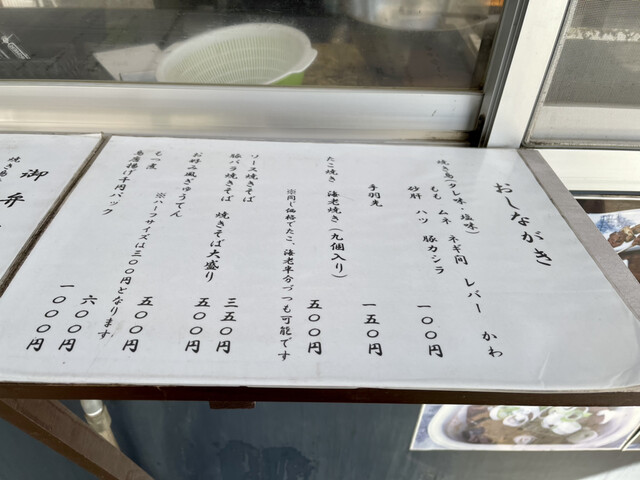 おしながき
焼き鳥(タレ味・塩味)
もも ムネ ネギ間 レバー かわ
砂肝 ハツ 豚カシラ
一〇〇円
手羽先
一五〇円
たこ焼き 海老焼き(九個入り)
五〇〇円
※同じ価格でたこ、海老半分づつも可能です
ソース焼きそば
三五〇円
豚バラ焼きそば 焼きそば大盛り
五〇〇円
お好み風ぎゅうてん
五〇〇円
※ハーフサイズは三〇〇円となります。
もつ煮
六〇〇円
鳥唐揚げ千円パック
一〇〇〇円
御弁
焼き鳥